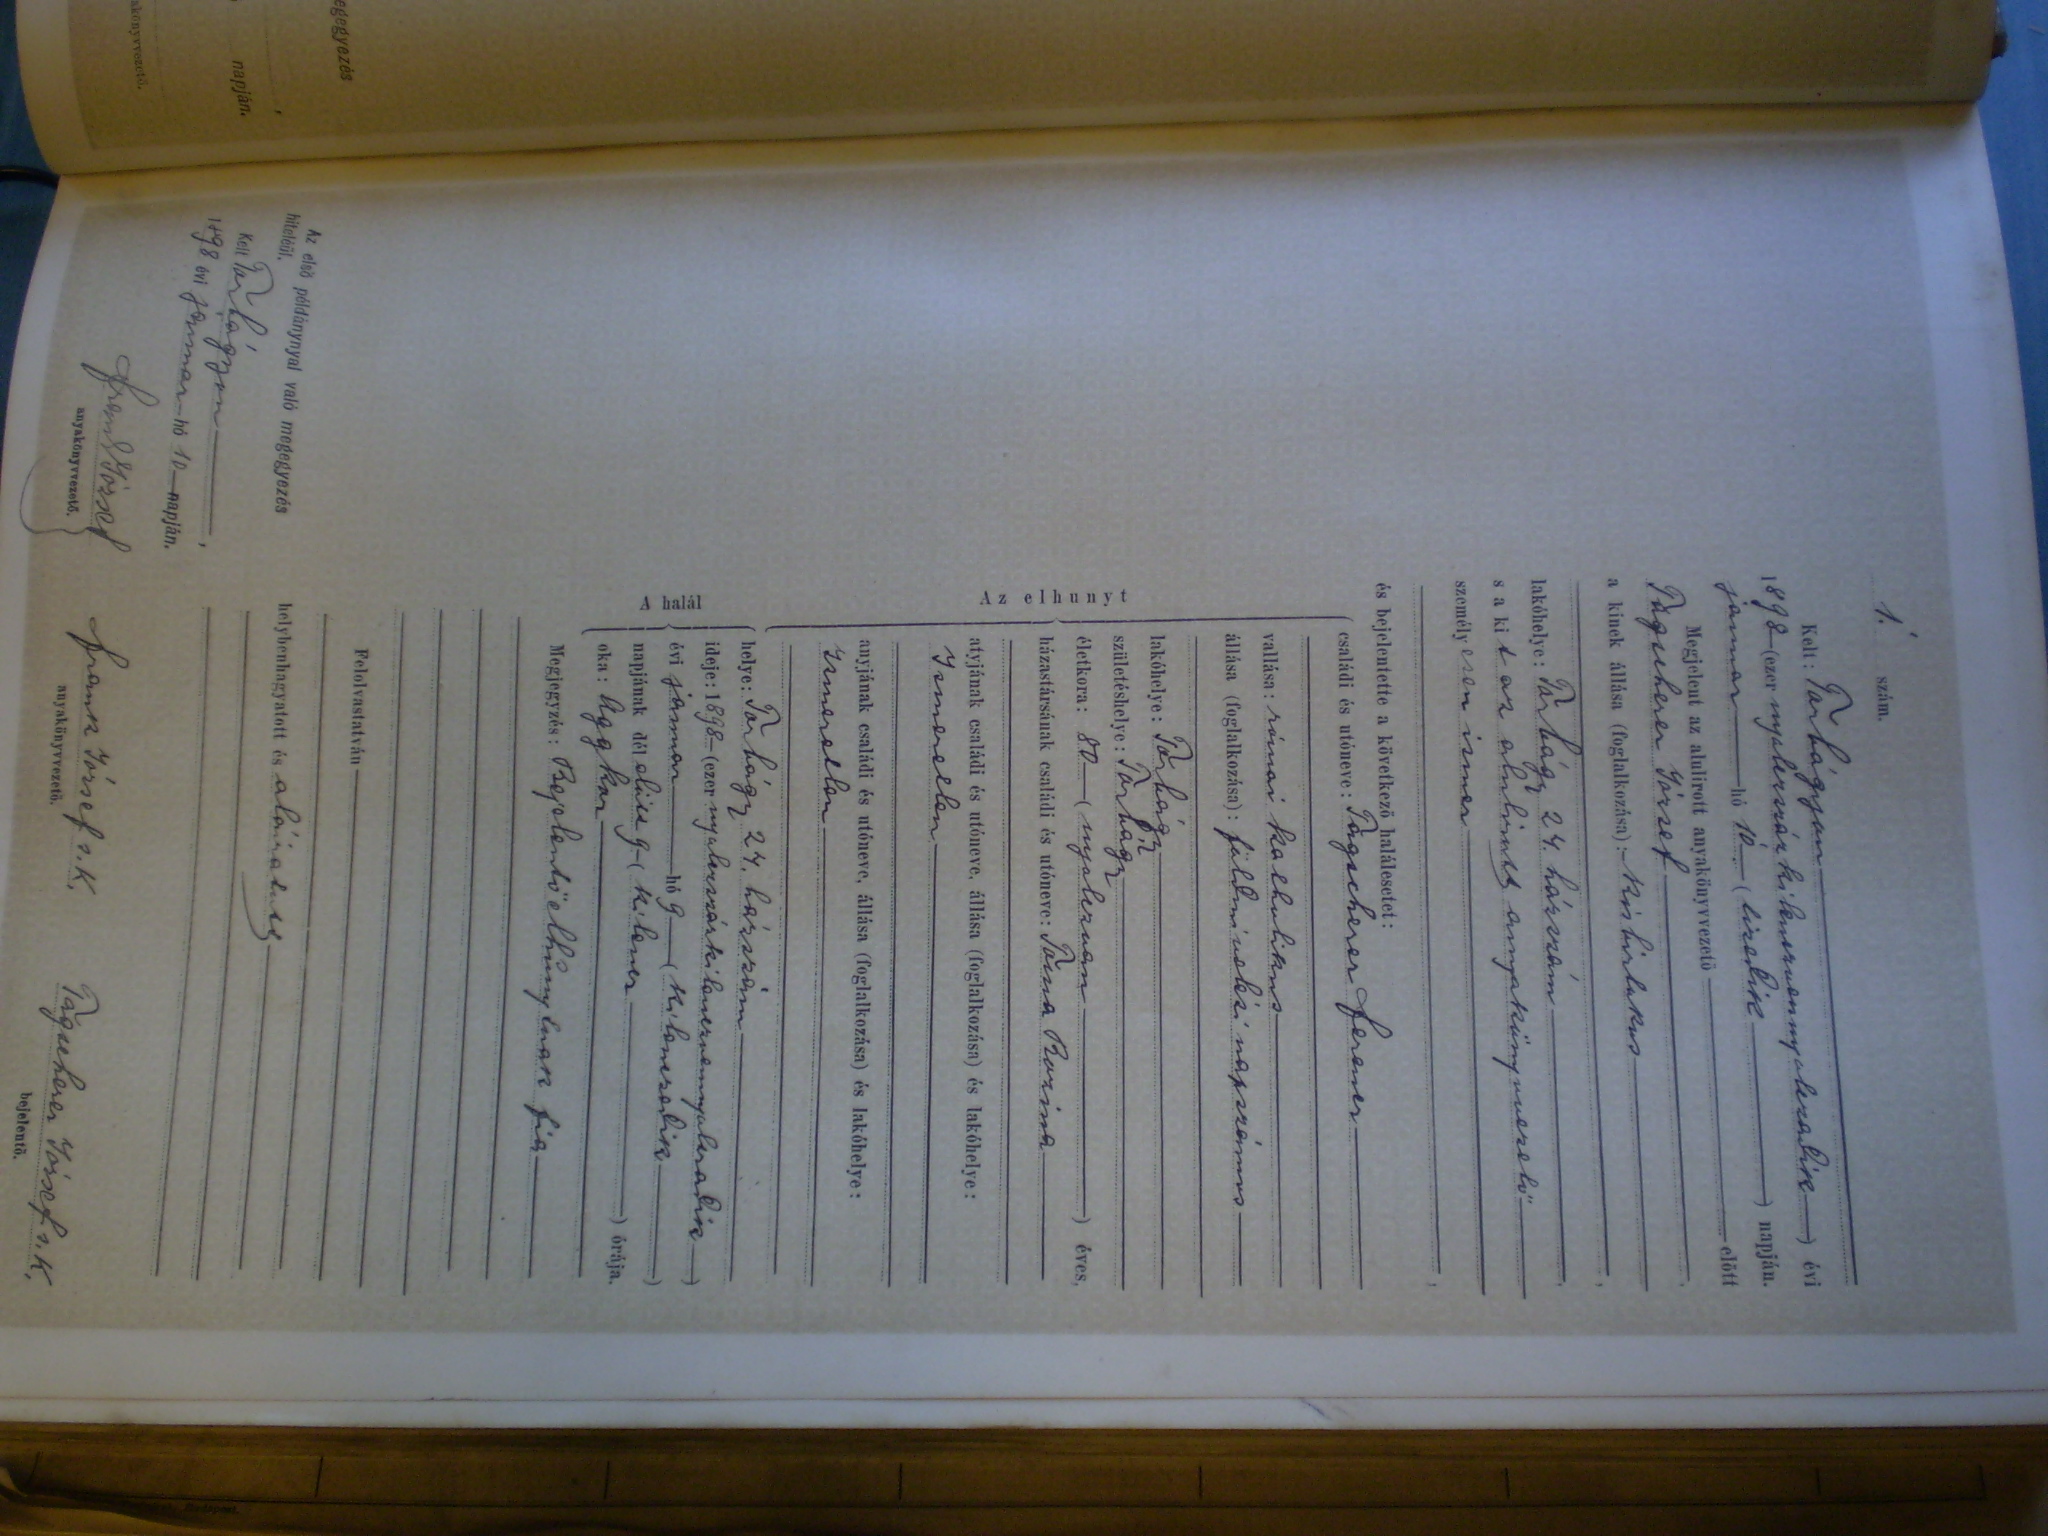 egegyezés
napján.
akönyvvezető.
1. szám.
Kelt: Torbágyon
1898 (ezer nyolczszázkilenczvennyolczadik) évi
januar hó 10 (tizedik) napján.
Megjelent az alulirott anyakönyvvezető előtt
Tagscherer József,
a kinek állása (foglalkozása): kisbirtokos,
lakóhelye: Torbágy 24. házszám,
s a ki t az alulirott anyakönyvvezető
személyesen ismer,
és bejelentette a következő halálesetet:
Az elhunyt
családi és utóneve: Tagscherer Ferencz
vallása: római katholikus
állása (foglalkozása): földmivelési napszámos
lakóhelye: Torbágy
születéshelye: Torbágy
életkora: 80 (nyolczvan) éves,
házastársának családi és utóneve: Rozina
atyjának családi és utóneve, állása (foglalkozása) és lakóhelye:
Ismeretlen
anyjának családi és utóneve, állása (foglalkozása) és lakóhelye:
Ismeretlen
A halál
helye: Torbágy 24. házszám
ideje: 1898 (ezer nyolczszázkilenczvennyolczadik)
évi januar hó 9 (kilenczedik)
napjának dél előtti 9 (kilencz) órája.
oka: Aggkor
Megjegyzés: Bejelentő elhunytnak fia
Felolvastatván
helybenhagyatott és aláiratott
Frank József s.k.
anyakönyvvezető.
Tagscherer József s.k.
bejelentő.
Az első példánynyal való megegyezés
hiteléül.
Kelt Torbágyon,
1898 évi januar hó 10 napján.
Frank József
anyakönyvvezető.
Budapest.